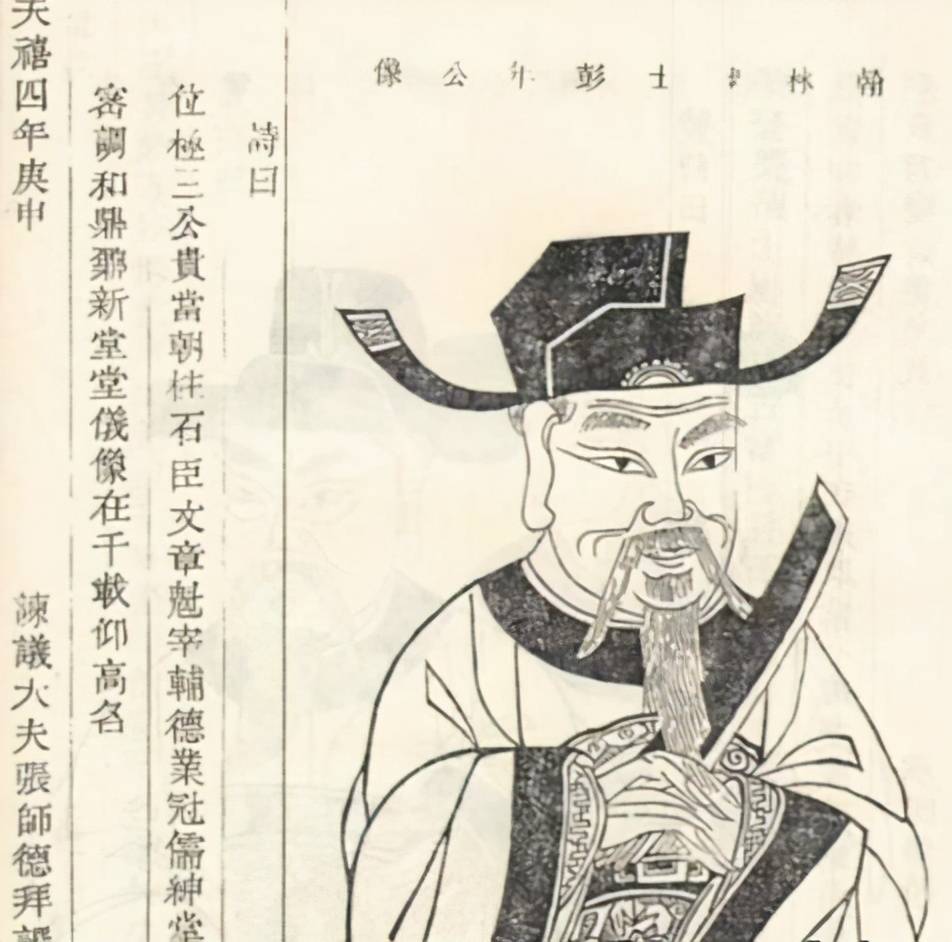 翰林士彭年公像
詩曰
位極三公貴當朝柱石臣文章魁宰輔德業冠儒紳
密調和鼎鼐新堂堂儀像在千載仰高名
天禧四年庚申 諫議大夫張師德拜